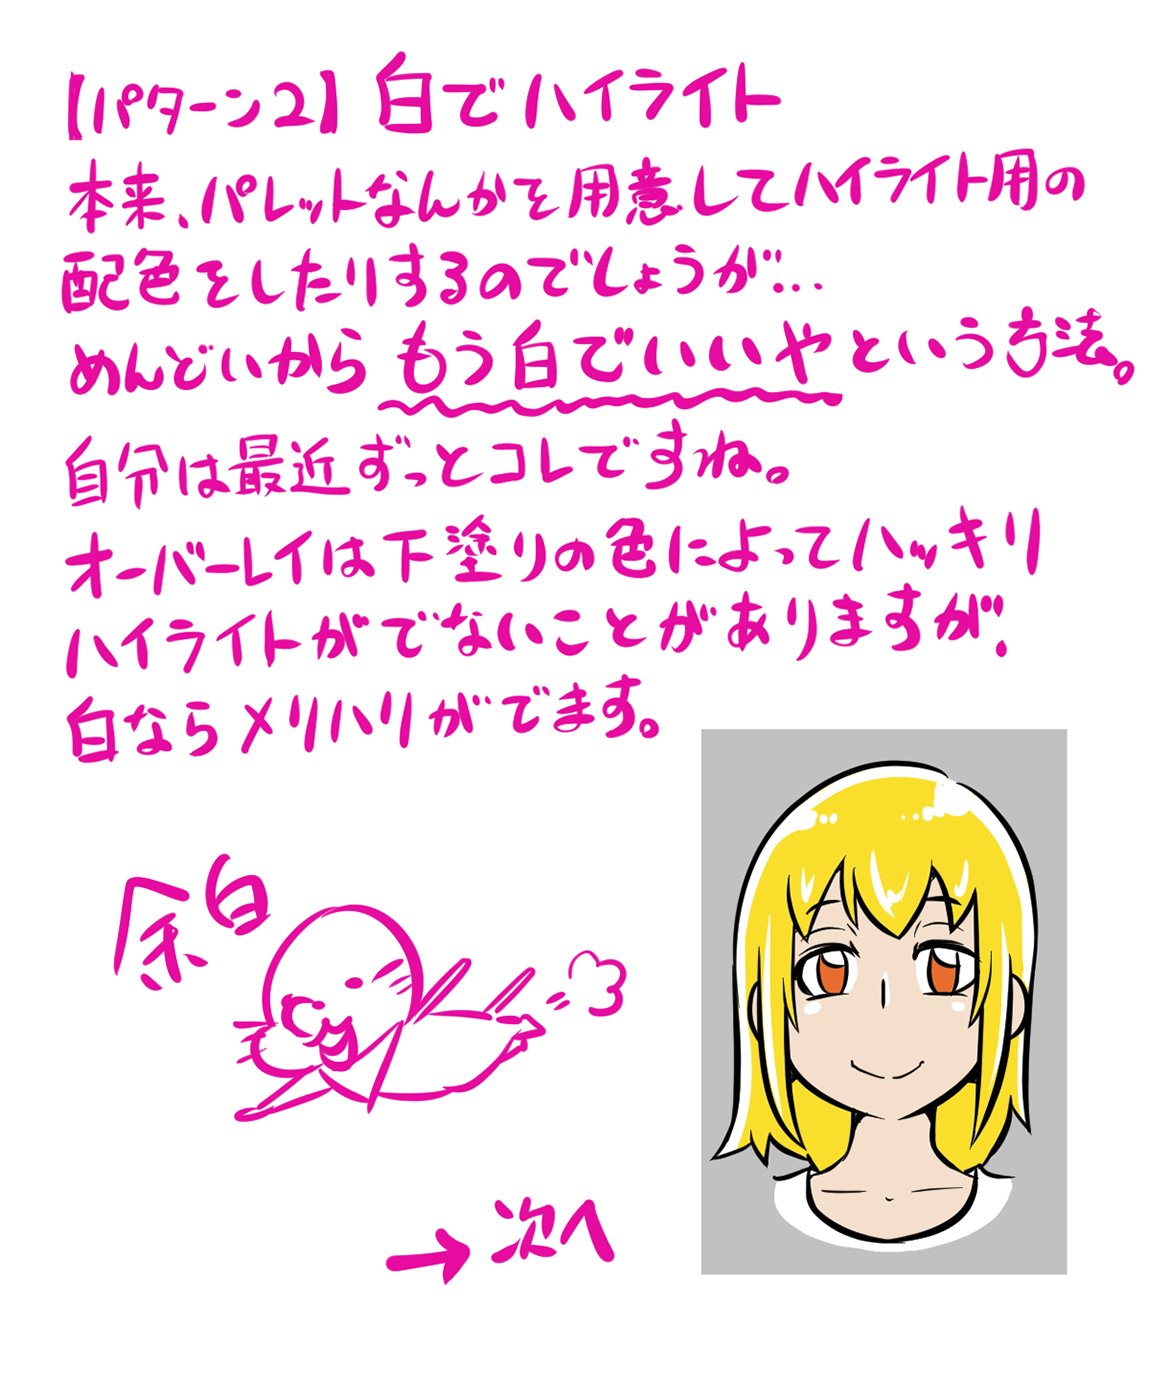 【パターン2】白でハイライト
本来、パレットなんかを用意してハイライト用の
配色をしたりするのでしょうが…
めんどいからもう白でいいやという方法。
自分は最近ずっとコレですね。
オーバーレイは下塗りの色によってハッキリ
ハイライトがでないことがありますが、
白ならメリハリがでます。
余白
→次へ